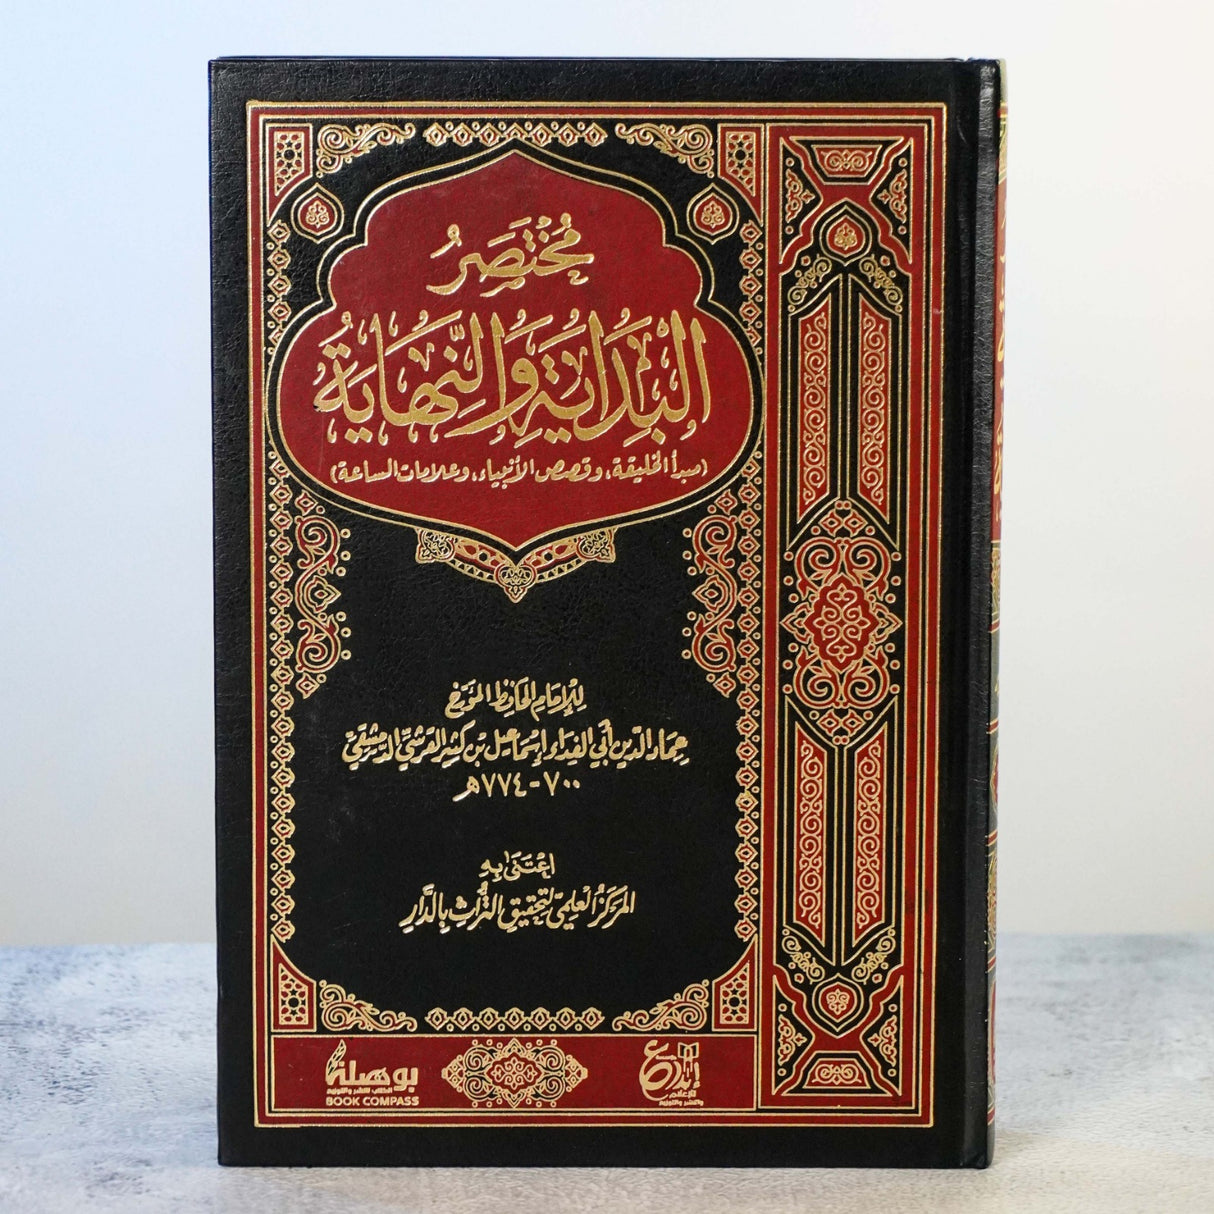 مُخْتَصَرُ
البِدَايَةِ وَالنِّهَايَةُ
(مبدأ الخليقة، وقصص الأنبياء، وعلامات الساعة)
لِلإِمَامِ الحَافِظِ المؤَرِّخِ
عِمَادِ الدِّينِ أَبِي الفِدَاءِ إِسْمَاعِيل بْنِ كَثِيرٍ القُرَشِيِّ الدِّمَشْقِيِّ
٧٠٠ - ٧٧٤هـ
اعْتَنَى بِهِ
المَرْكَزُ العِلْمِيُّ لِتَحْقِيقِ التُّرَاثِ بِالدَّارِ
بوصلة
الكتاب للنشر والتوزيع
BOOK COMPASS
إبداع
للإعلام
والنشر والتوزيع